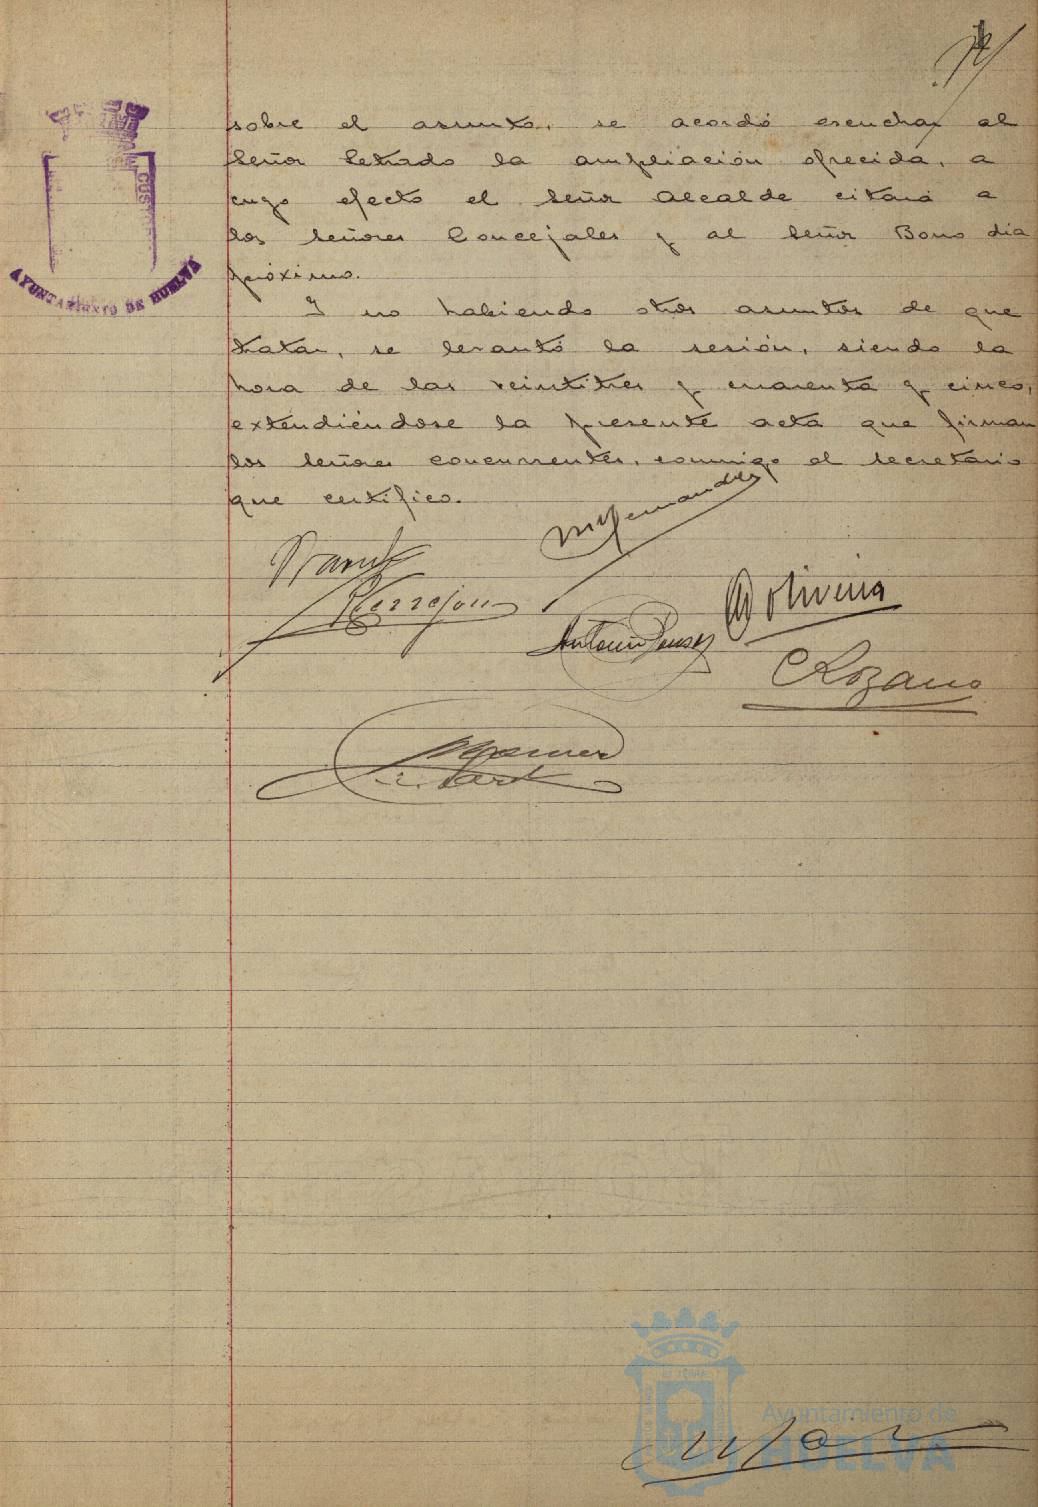 sobre el asunto, se acordó escuchar al
Señor Letrado la ampliación ofrecida, a
cuyo efecto el Señor Alcalde citará a
los Señores Concejales y al Señor Bono día
próximo.
Y no habiendo otros asuntos de que
tratar, se levantó la sesión, siendo la
hora de las veintitres y cuarenta y cinco,
extendiéndose la presente acta que firman
los Señores concurrentes, conmigo el Secretario
que certifico.
AYUNTAMIENTO DE HUELVA
Terrejon
Oliveira
Antonio
Lozano
Ayuntamiento de
HUELVA